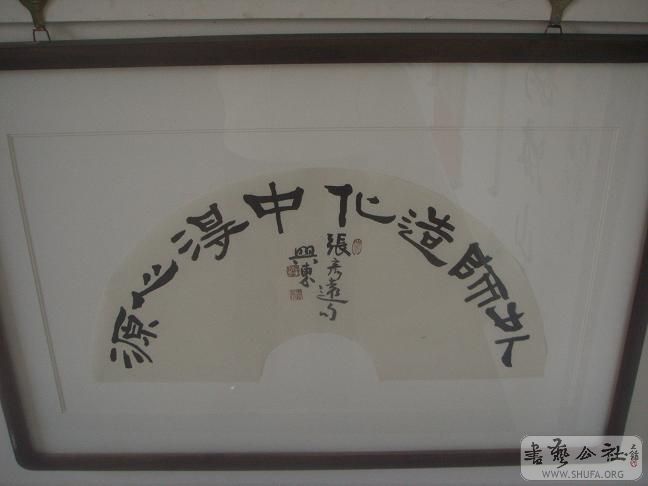 外師造化中得心源
張彦遠句
興東
書藝公社
WWW.SHUFA.ORG